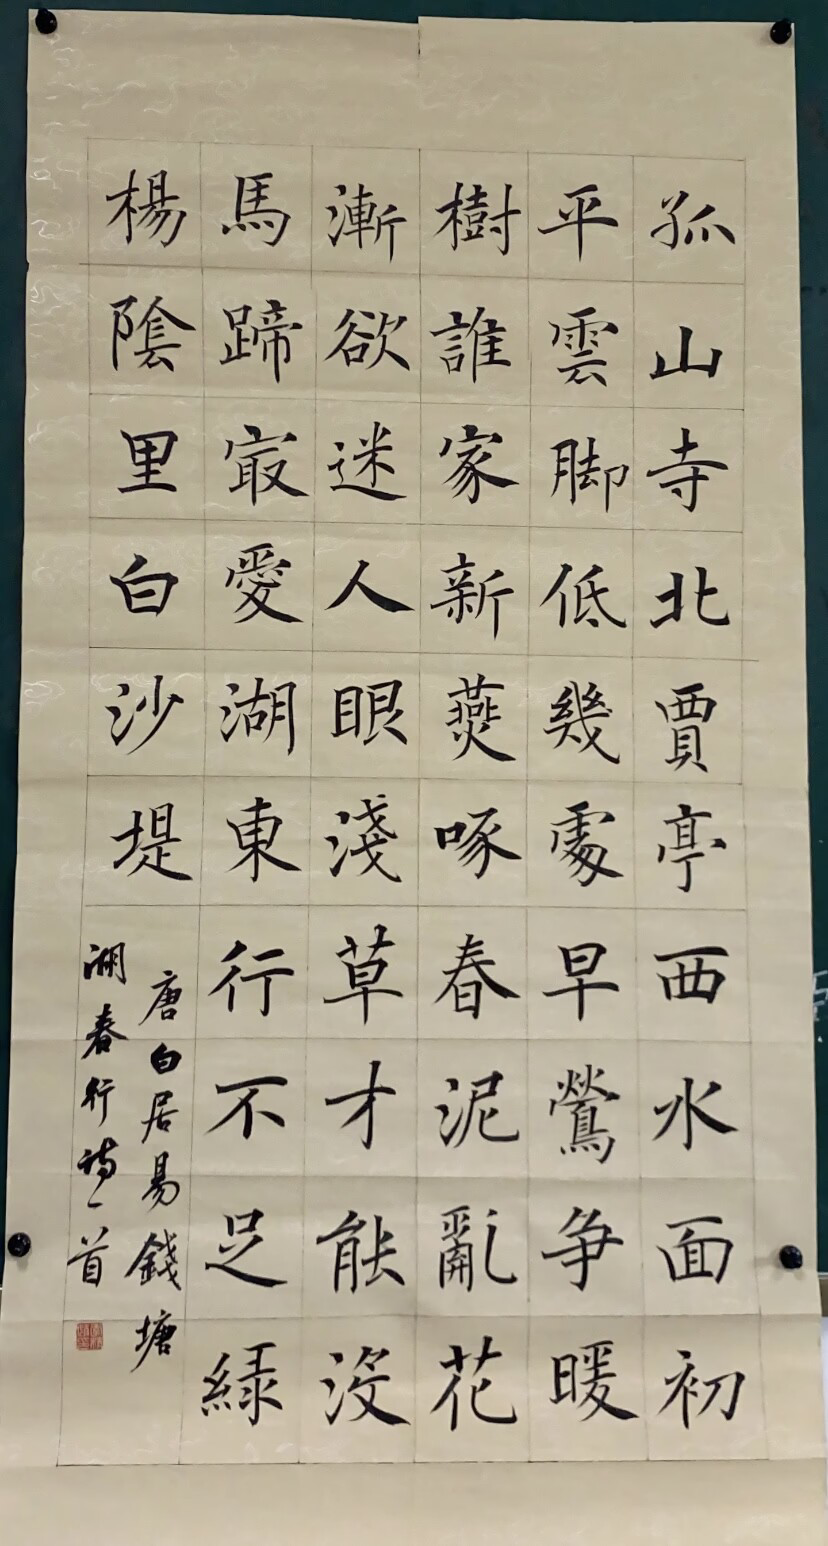 孤山寺北賈亭西水面初
平雲脚低幾處早鶯争暖
樹誰家新燕啄春泥亂花
漸欲迷人眼淺草才能没
馬蹄最愛湖東行不足緑
楊陰里白沙堤
唐白居易錢塘
湖春行詩一首